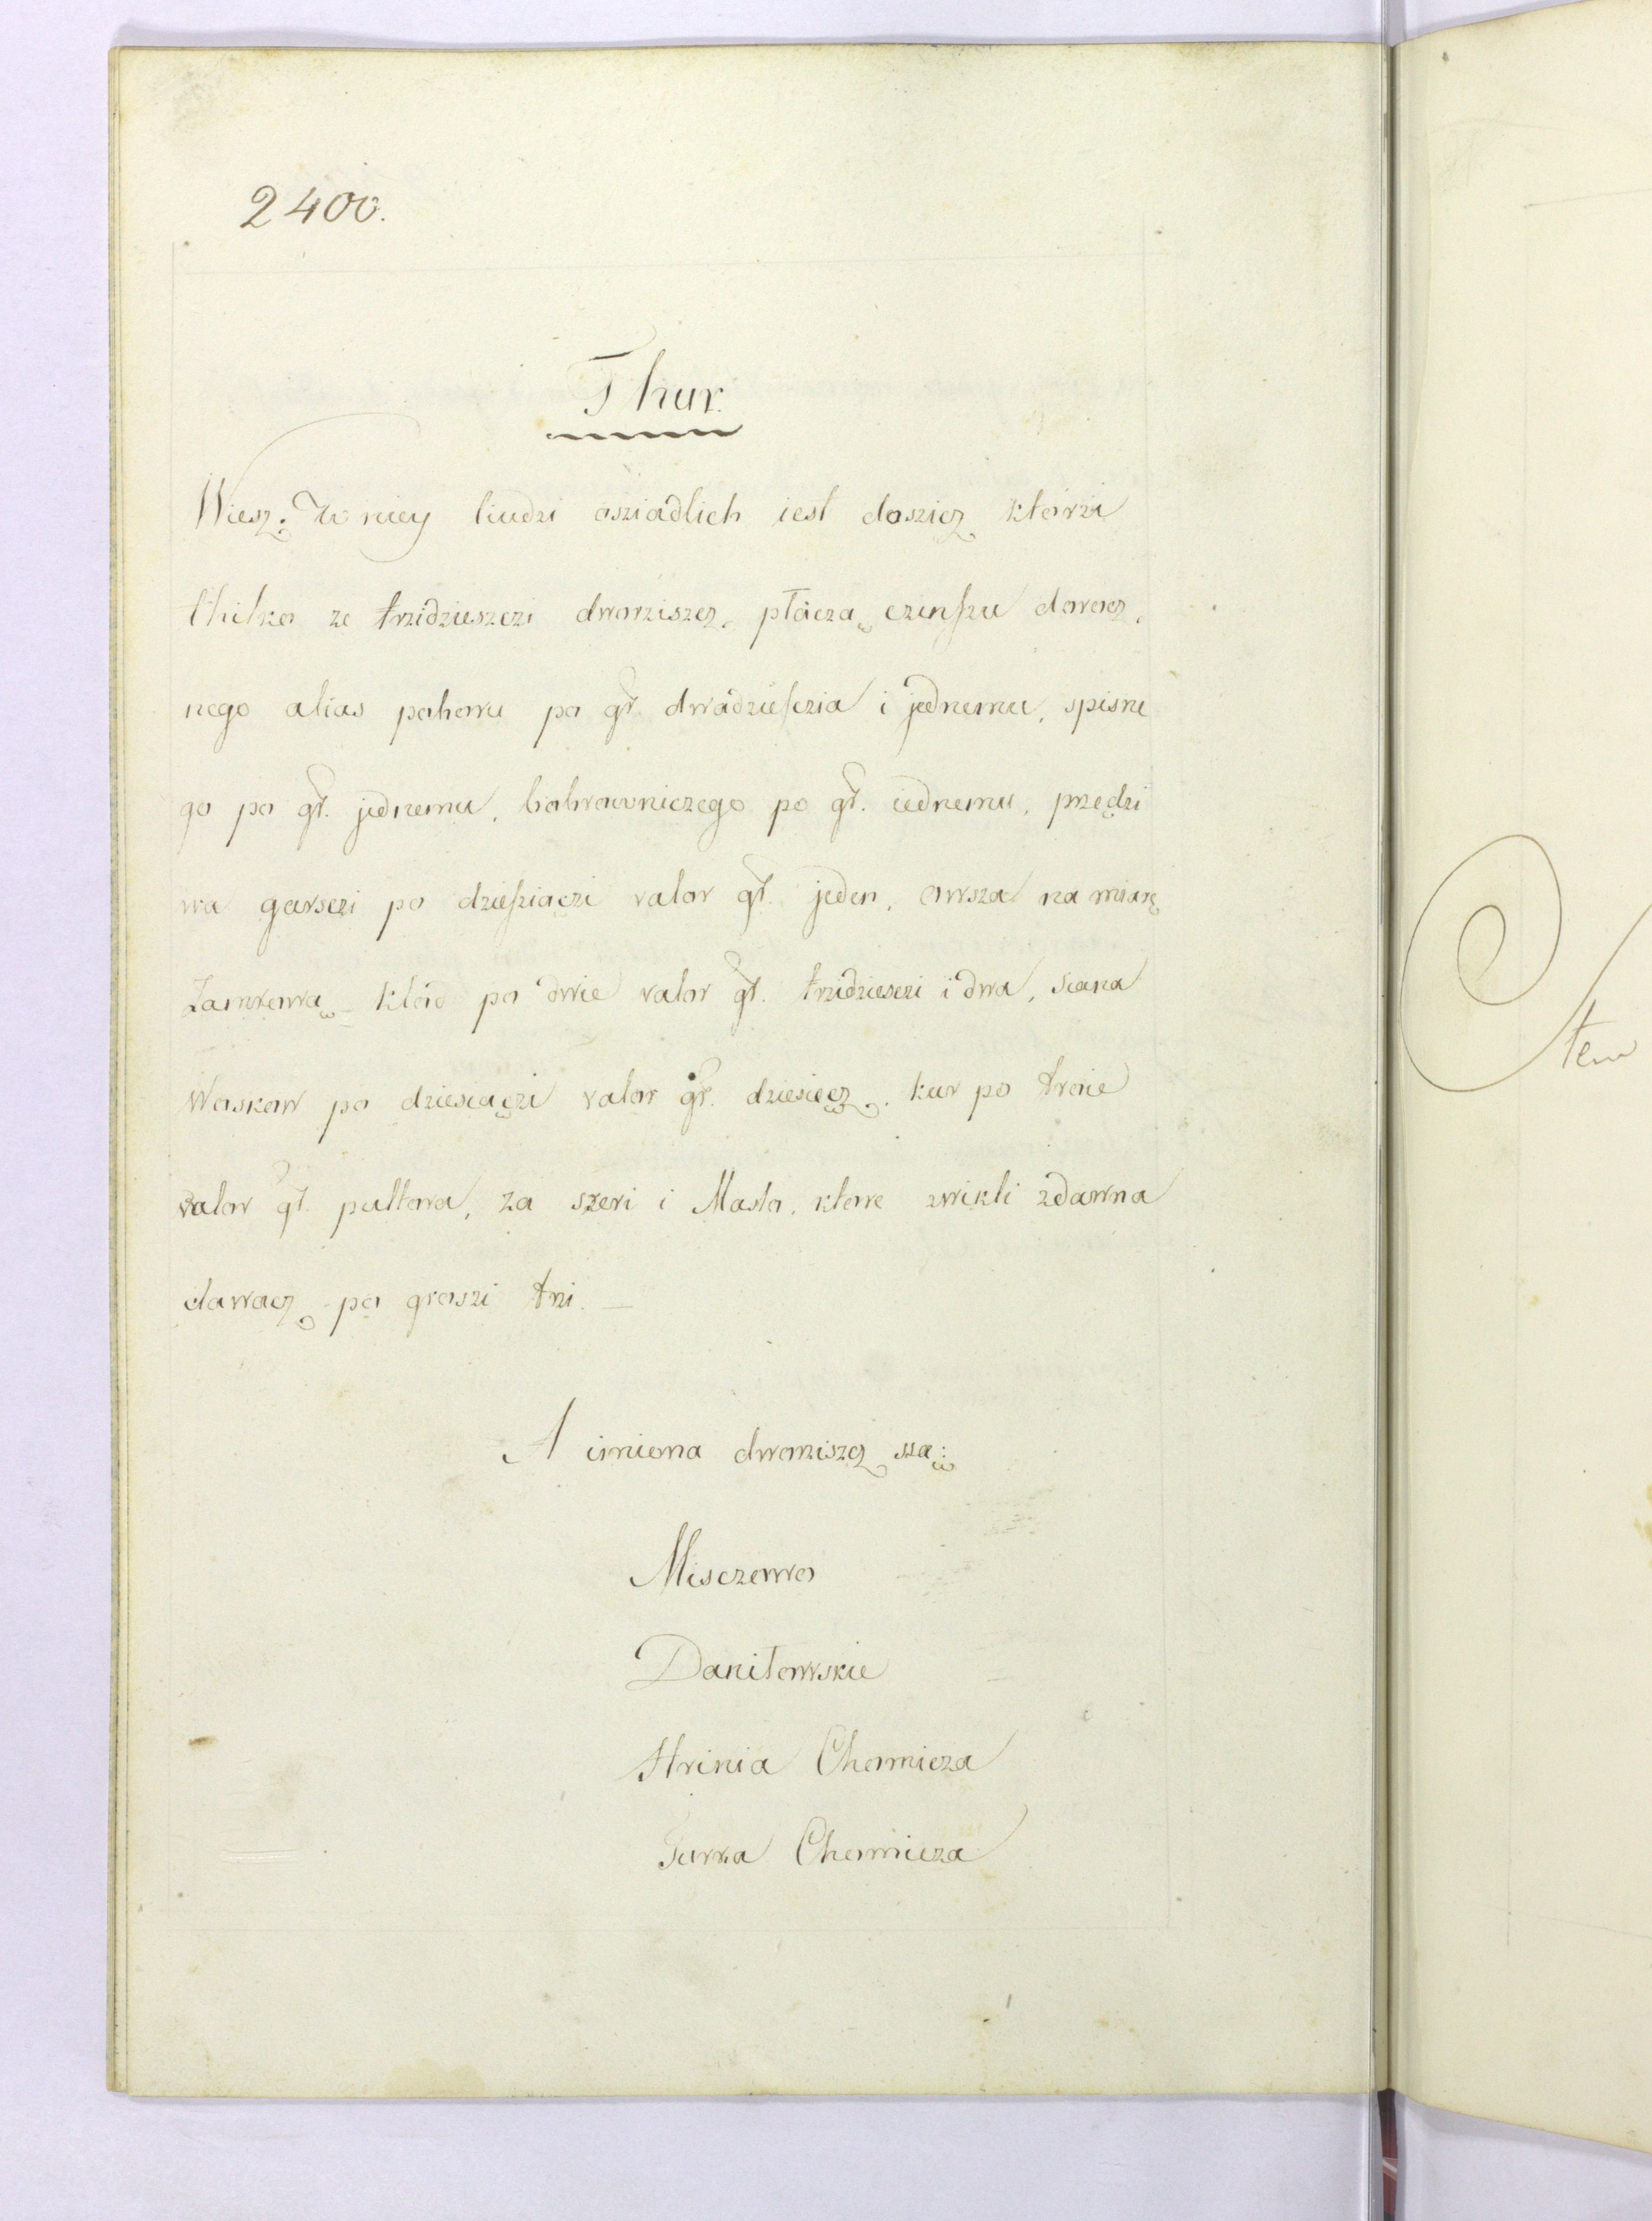 2400.
Thur.
Wiesz. W niey liudzi osziadlich iest doszicz, ktorzi
thilko ze trzidzieszczi dworziszcz, płacza czinszu dorocz,
nego alias pohowu po gr. dwadzieszcia i jednemu, spisne
go po gr. jednemu, bobrowniczego po gr. iednemu, przędzi
wa garsczi po dziesziączi valor gr. jeden, owsza na miarę
Zamkową kłód po dwie valor gr. trzidziesczi i dwa, siana
Woskow po dziesiączi valor gr. dziesięcz, kur po troie
valor gr. pultora, za szeri i Masło, ktore zwikli zdawna
dawacz po groszi trzi. —
A imiona dworziszcz są:
Misczewo
Daniłowskie
Hrinia Chomicza
Jurka Chomicza